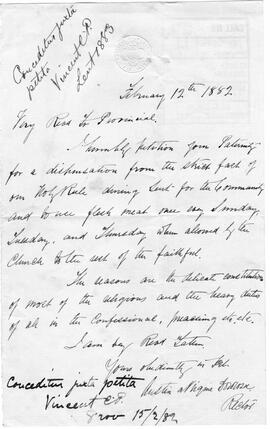 Conceditur juxta
petito
Vincent C.P.
Lent 1883
February 12th 1882
Very Revd Fr Provincial.
I humbly petition your Paternity
for a dispensation from the strict fast of
our Holy Rule during Lent for the Community
and to use flesh meat once every Sunday,
Tuesday, and Thursday when allowed by the
Church to the rest of the faithful.
The reasons are the delicate constitutions
of most of the religious and the heavy duties
of all in the Confessional, preaching etc. etc.
I am Very Revd Father
Yours obediently in
Conceditur juxta petita
Rector
Vincent C.P.
Prov 15/2/82